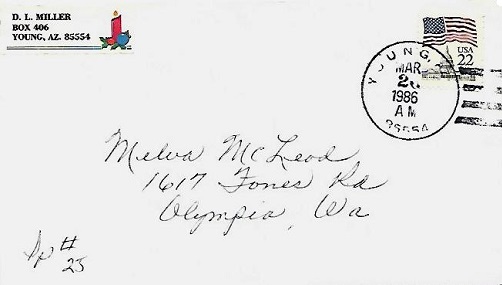 D. L. MILLER
BOX 406
YOUNG, AZ. 85554
USA
22
YOUNG,
MAR
1986
AM
85554
Melva McLeod
1617 Fones Rd
Olympia, Wa
Sp #
25